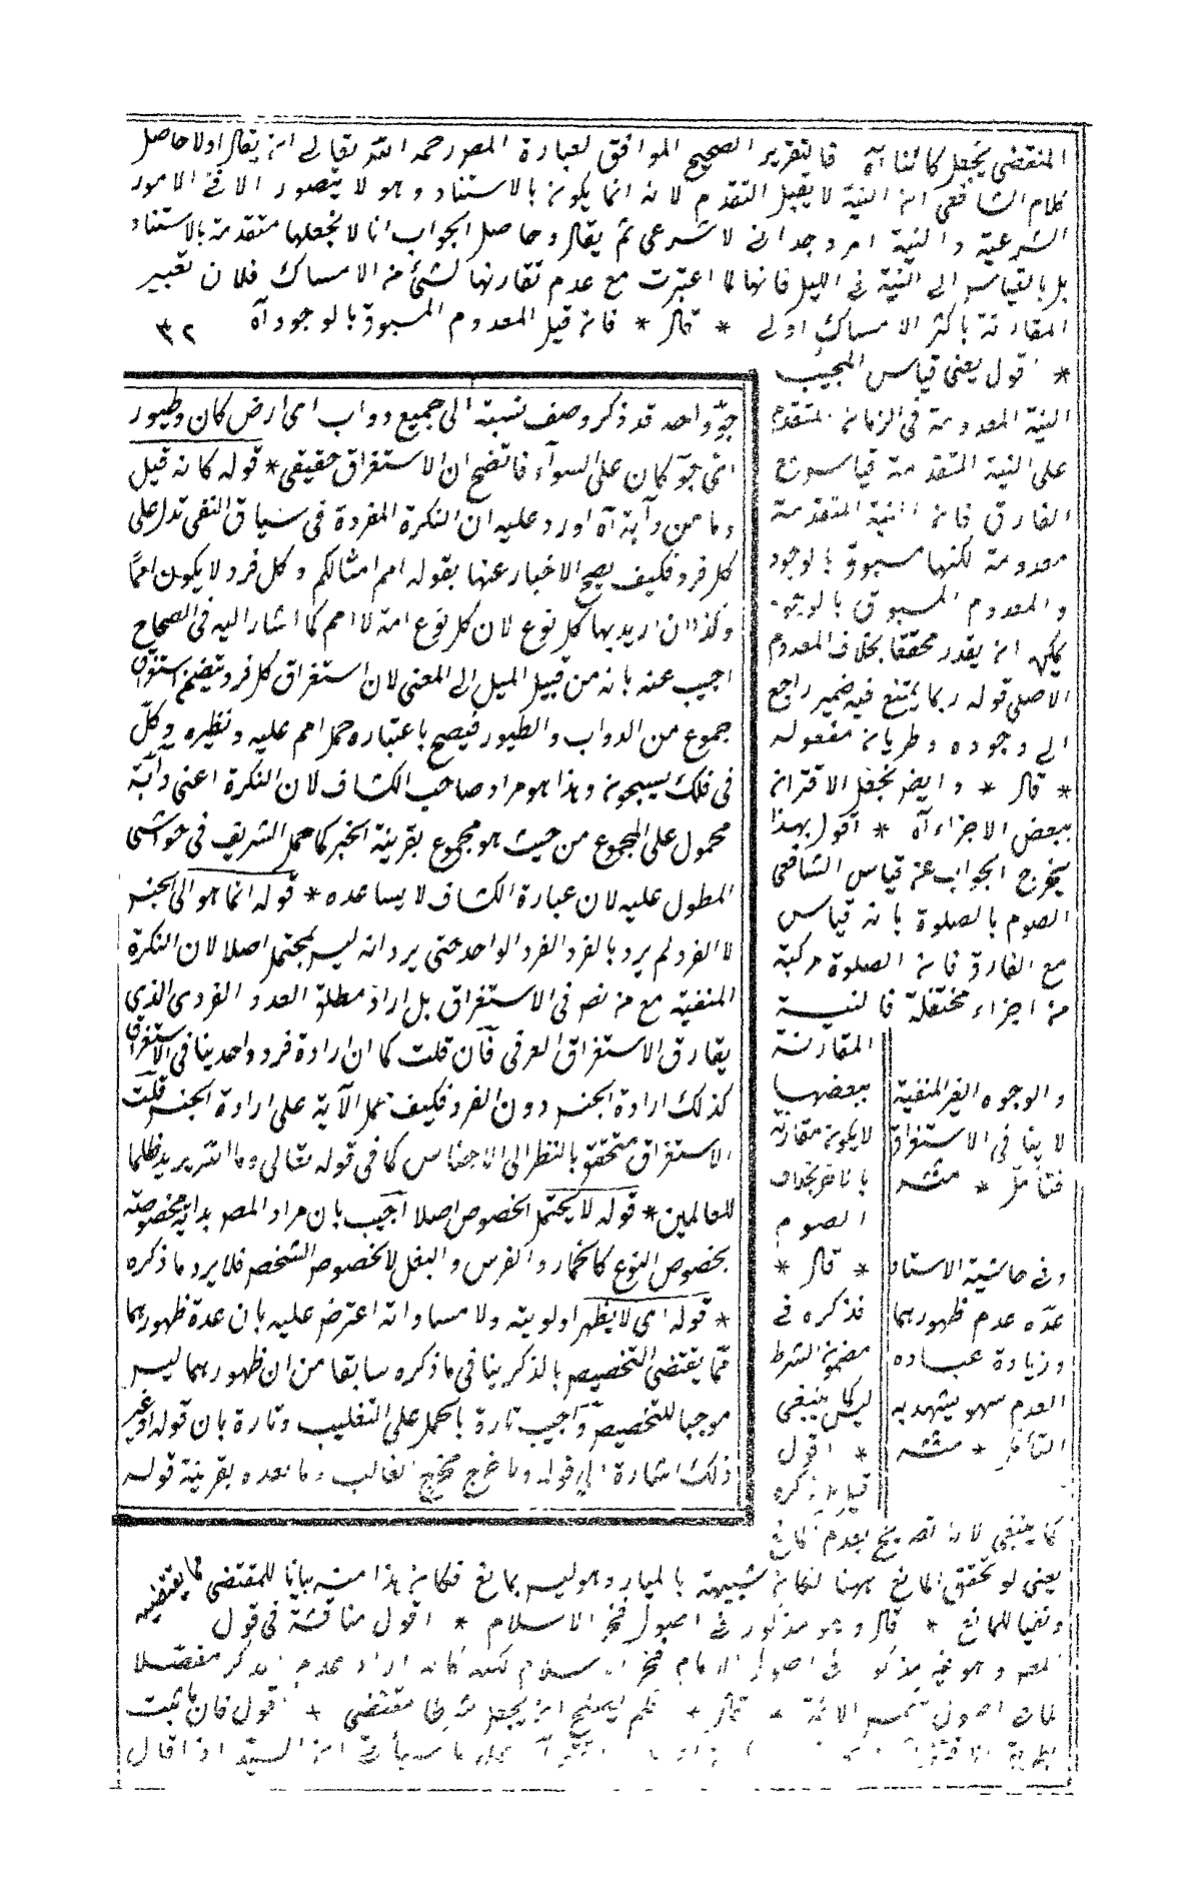 المنقضى يجعل كائنا آه فالتقرير الصحيح الموافق لعبارة المص رحمه الله تعالى ان يقال اولا حاصل
كلام الشافعى ان النية لا يقبل التقدم لانه انما يكون بالاستناد وهو لا يتصور الا فى الامور
الشرعية والنية امر وجدانى لا شرعى ثم يقال وحاصل الجواب انا لا نجعلها متقدمة بالاستناد
بل بالقياس الى النية فى الليل فانها لما اعتبرت مع عدم تقارنها لشئ من الامساك فلان تعبير
المقارنة باكثر الامساك اولى * قال * فان قيل المعدوم المسبوق بالوجود آه
* اقول يعنى قياس المجيب
النية المعدومة فى الزمان المتقدم
على النية المتقدمة قياس مع
الفارق فان النية المتقدمة
معدومة لكنها مسبوق بالوجود
والمعدوم المسبوق بالوجود
يمكن ان يقدر محققا بخلاف المعدوم
الاصلى قوله ربما يمتنع فيه ضمير راجع
الى وجوده وطريان مفعوله
* قال * وايضا نجعل الاقتران
ببعض الاجزاء آه * اقول بهذا
يخرج الجواب عن قياس الشافعى
الصوم بالصلوة بانه قياس
مع الفارق فان الصلوة مركبة
من اجزاء مختلفة فالنية
المقارنة
ببعضها
لا يكون مقارنة
بالآخر بخلاف
الصوم
* قال *
فذكره فى
مضمون الشرط
ليس كما ينبغى
* اقول
قيل بل ذكره
كما ينبغى لانه تصريح بعدم المانع
يعنى لو تحقق المانع ههنا لكان شبيهة بالميار وهو ليس بمانع فكان هذا منه بيانا للمقتضى مما يقتضيه
ونفيا للمانع * قال وهو مذكور فى اصول فخر الاسلام * اقول مناقشة فى قول
المص وهو غير مذكور فى اصول الامام فخر الاسلام لكنه كانه اراد عدم الذكر مفصلا
اصول شمس الائمة * قال * فلم يصلح ان يجعل شرطا مقتضى * اقول فان ثبت
السيد اذا قال
والوجوه الغير المنفية
لا ينافى الاستغراق
فتأمل * منه
وفى حاشية الاستاد
عده عدم ظهورهما
وزيادة عباده
العدم سهو يشهد به
التأمل * منه
جو واحد قد ذكر وصف نسبة الى جميع دواب اى ارض كان وطيور
اى جو كان على السواء فاتضح ان الاستغراق حقيقى * قوله كانه قيل
وما من دآبة آه اورد عليه ان النكرة المفردة فى سياق النفى تدل على
كل فرد فكيف يصح الاخبار عنها بقوله امم امثالكم وكل فرد لا يكون امما
وكذا ان اريد بها كل نوع لان كل نوع امة لا امم كما اشار اليه فى الصحاح
اجيب عنه بانه من قبيل الميل الى المعنى لان استغراق كل فرد يتضمن استغراق
جموع من الدواب والطيور فيصح باعتباره حمل امم عليه ونظيره وكل
فى فلك يسبحون وهذا هو مراد صاحب الكشاف لان النكرة اعنى دآبة
محمول على المجموع من حيث هو مجموع بقرينة الخبر كما حمل الشريف فى حواشى
المطول عليه لان عبارة الكشاف لا يساعده * قوله انما هو الى الجنس
لا الفرد لم يرد بالفرد الفرد الواحد حتى يرد انه ليس بمحتمل اصلا لان النكرة
المنفية مع من نص فى الاستغراق بل اراد مطلق العدد الفردى الذى
يفارق الاستغراق العرفى فان قلت كما ان ارادة فرد واحد ينافى الاستغراق
كذلك ارادة الجنس دون الفرد فكيف حمل الآية على ارادة الجنس قلت
الاستغراق متحقق بالنظر الى الاجناس كما فى قوله تعالى وما الله يريد ظلما
للعالمين * قوله لا يحتمل الخصوص اصلا اجيب بان مراد المص بدابة مخصوصة
بخصوص النوع كالحمار والفرس والبغل لا بخصوص الشخص فلا يرد ما ذكره
* قوله اى لا يظهر اولويته ولا مساواته اعترض عليه بان عدة ظهورهما
مما يقتضى التخصيص بالذكر ينافى ما ذكره سابقا من ان ظهورهما ليس
موجبا للتخصيص واجيب تارة بالحمل على التغليب وتارة بان قوله او غير
ذلك اشارة الى قوله وما خرج مخرج الغالب وما بعده بقرينة قوله